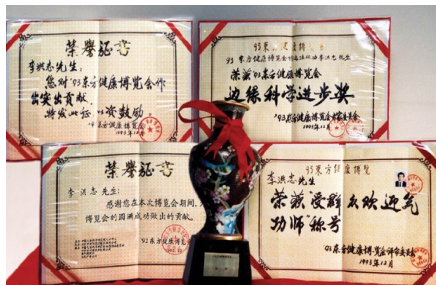 荣誉证书
李洪志先生:
您对'93东方健康博览会作
出突出贡献,
特发此证,以资鼓励。
'93东方健康博览会
1993.12月
李洪志先生:
荣获'93东方健康博览会
边缘科学进步奖
'93东方健康博览会
1993年12月
荣誉证书
李洪志先生:
感谢您在本次博览会期间,
博览会的圆满成功做出的贡献。
'92东方健康博览会
93东方健康博览
李洪志先生
荣获受群众欢迎气
功师称号
'93东方健康博览会评审委员会
1993年12月